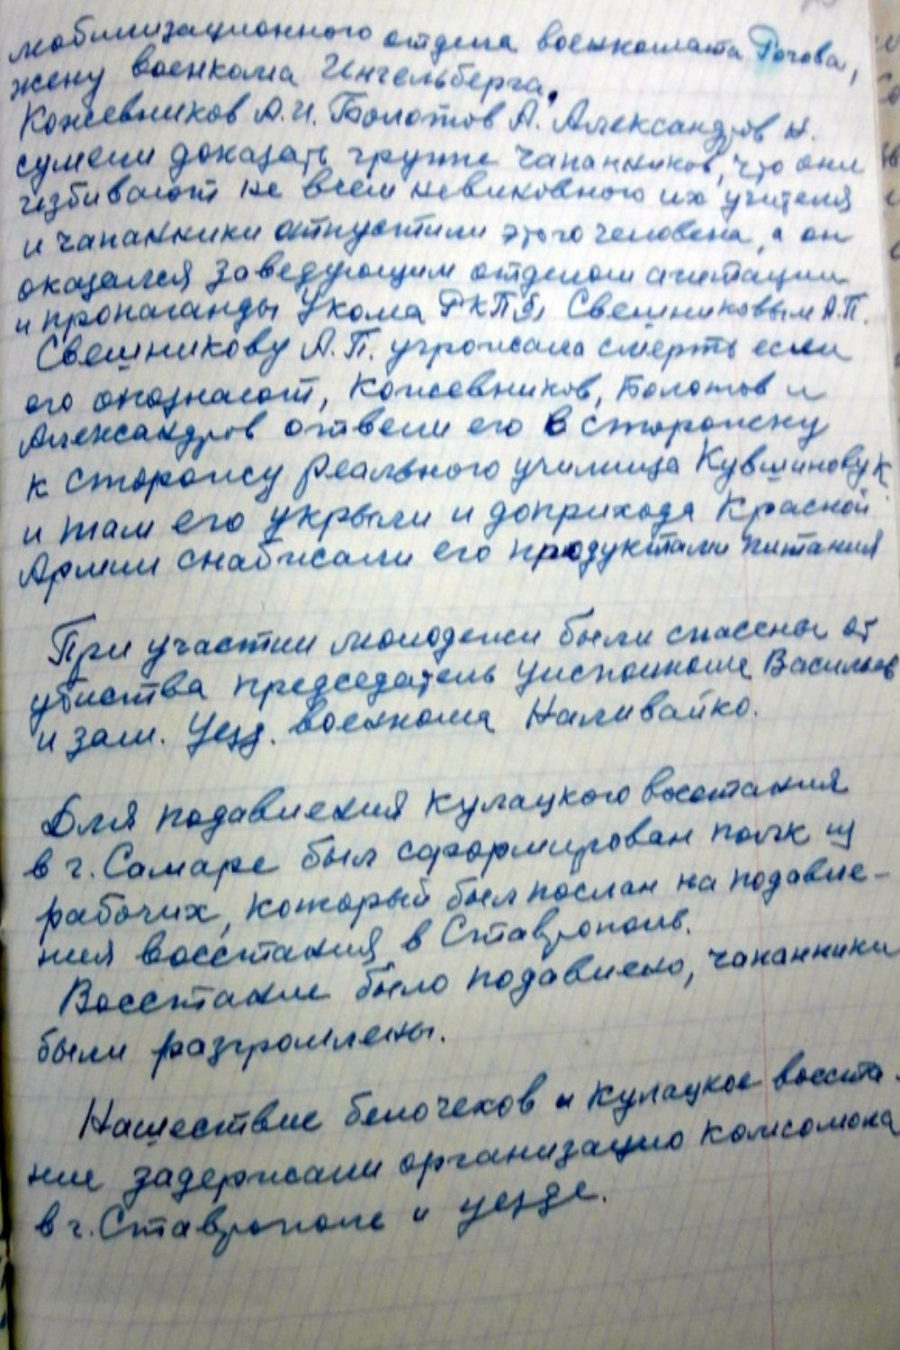 мобилизационного отдела военкомата Рогова,
жену военкома Ингельберга.
Кожевников А.И. Болотов А. Александров Н.
сумели доказать группе чапанников, что они
избивают не всем невиновного их учителя
и чапанники отпустили этого человека, а он
оказался заведующим отделом агитации
и пропаганды Укома РКПб, Свешниковым А.П.
Свешникову А.П. угрожала смерть если
его опознают, Кожевников, Болотов и
Александров отвели его в сторожку
к сторожу реального училища Кувшинову К
и там его укрыли и доприхода Красной
Армии снабжали его продуктами питания
При участии молодежи были спасены от
убиства председатель Уисполкома Васильев
и зам. Уезд. военкома Наливайко.
Для подавления кулацкого восстания
в г. Самаре был сформирован полк из
рабочих, который был послан на подавле-
ния восстания в Ставрополь.
Восстание было подавлено, чапанники
были разгромлены.
Нашествие белочехов и кулацкое восста-
ние задержали организацию комсомола
в г. Ставрополе и уезде.